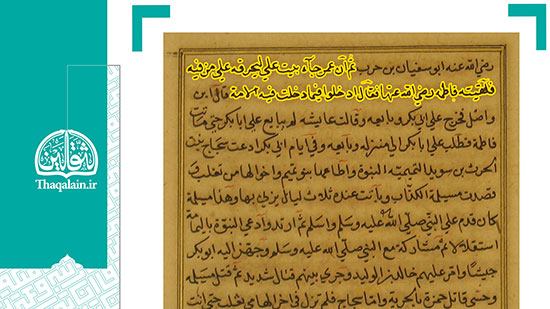 رضي الله عنه ابو سفيان بن حرب ثم ان عمر جآء بيت علي ليحرقه علي من فيه
فلقيته فاطمه رضي الله عنها فقال ادخلوا فيما دخلت فيه الامة قال ابن
واصل فخرج علي الى ابي بكر وبايعه وقالت عايشه لم يبايع علي ابا بكر حتي ماتت
فاطمة فطلب علي ابا بكر الي منزله وبايعه وفي ايام ابي بكر ادعت سجاح بنت
الحرث بن سويد التميميه النبوة واطاعها بنو تميم واخوالها من تغلب
قصدت مسيلمة الكذاب وباتت عنده ثلاث ليال يزني بها وهذا مسيلمة
كان قدم علي النبي صلي الله عليه وسلم واسلم ثم ارتد وادعي النبوة باليمامة
استقلالا ثم مشاركة مع النبي صلي الله عليه وسلم وجهز اليه ابو بكر
جيشا وامر عليهم خالد بن الوليد وجري بينهم قتال شديد ثم قتل مسيلمة
وحشي قاتل حمزة بالحربة واما سجاح فلم تزل في اخوالها من تغلب حتي
ثقلین
Thaqalain.ir